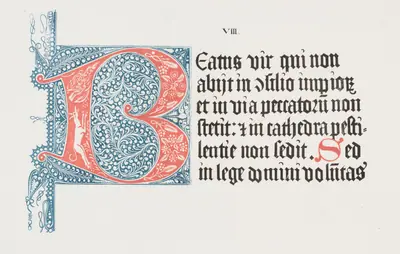 VIII.
Beatus vir qui non
abijt in ꝯsilio impioꝝ
et in via peccatoꝝ non
stetit: ⁊ in cathedra pesti-
lentie non sedit. Sed
in lege domini volūtas